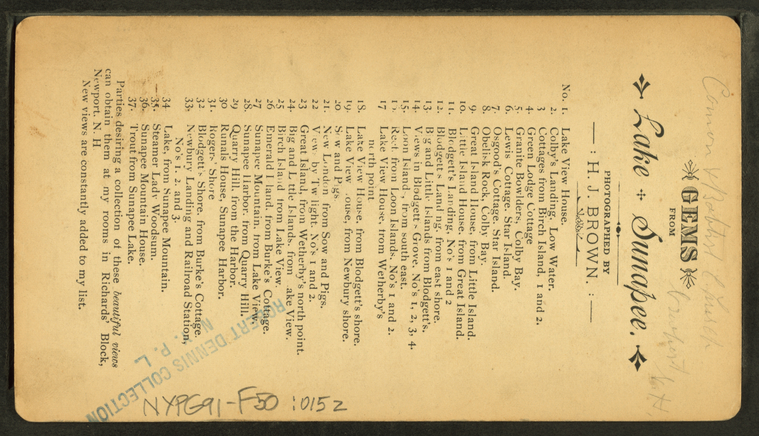 GEMS
FROM
Lake + Sunapee.
PHOTOGRAPHED BY
H. J. BROWN.
No. 1. Lake View House.
2. Colby's Landing, Low Water.
3 Cottages from Birch Island, 1 and 2.
4. Green Lodge Cottage
5. Granite Bowlder, Colby Bay.
6. Lewis Cottage, Star Island.
7. Osgood's Cottage, Star Island.
8. Obelisk Rock, Colby Bay.
9. Great Island House, from Little Island.
10. Little Island House, from Great Island.
11. Blodgett's Landing, No's 1 and 2
12. Blodgett's Landing, from east shore.
13. Big and Little Islands from Blodgett's.
14. Views in Blodgett's Grove, No's 1, 2, 3, 4.
15. Loon Island, from south east.
Reef from Loon Islands, No's 1 and 2.
17 Lake View House, from Wetherby's
north point
18. Lake View House, from Blodgett's shore.
19. Lake View House, from Newbury shore.
20. Sow and Pigs.
21. New London from Sow and Pigs.
22 View by Twilight, No's 1 and 2.
23 Great Island, from Wetherby's north point.
24. Big and Little Islands, from Lake View.
25 Birch Island from Lake View.
26 Emerald Island, from Burke's Cottage.
27. Sunapee Mountain, from Lake View.
28. Sunapee Harbor, from Quarry Hill.
29 Quarry Hill, from the Harbor.
30 Runals House, Sunapee Harbor.
31 Rogers Shore
32 Blodgett's Shore, from Burke's Cottage
33. Newbury Landing and Railroad Station,
No's 1, 2, and 3.
34. Lake, from Sunapee Mountain.
35. Steamer Lady Woodsum.
36. Sunapee Mountain House.
37. Trout from Sunapee Lake.
Parties desiring a collection of these beautiful views
can obtain them at my rooms in Richards' Block,
Newport, N. H
New views are constantly added to my list.
ROBERT DENNIS COLLECTION
N. Y. P. L.
NYPG91-F50 :0152